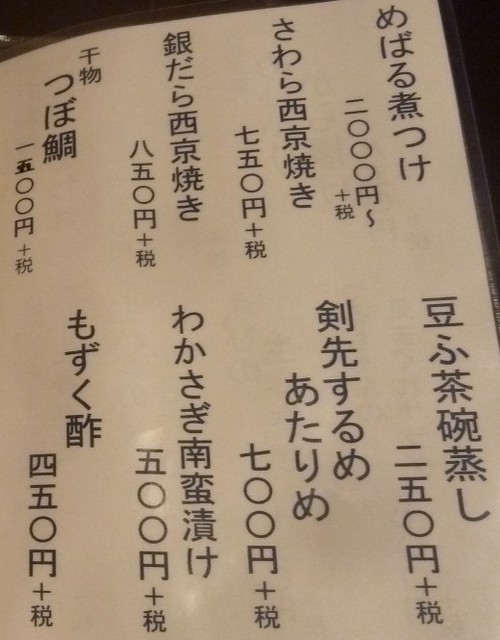 めばる煮つけ
二〇〇〇円～
＋税
さわら西京焼き
七五〇円＋税
銀だら西京焼き
八五〇円＋税
干物
つぼ鯛
一五〇〇円＋税
豆ふ茶碗蒸し
二五〇円＋税
剣先するめ
あたりめ
七〇〇円＋税
わかさぎ南蛮漬け
五〇〇円＋税
もずく酢
四五〇円＋税